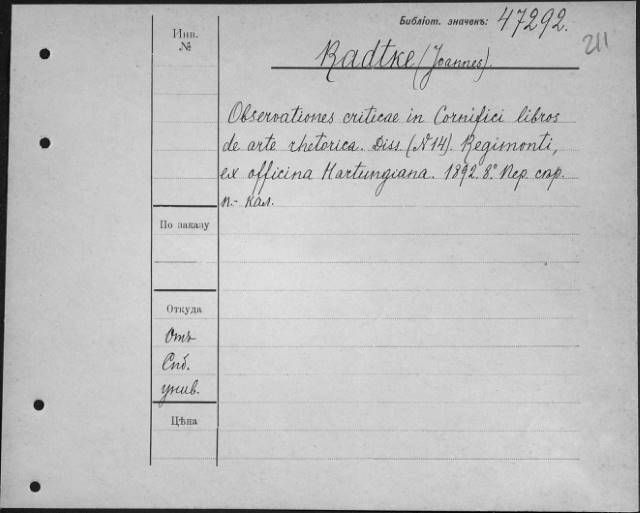 Библіот. значенъ: 47292.
211
Инв.
№
Radtke (Joannes).
Observationes criticae in Cornifici libros
de arte rhetorica. Diss. (№14). Regimonti,
ex officina Hartungiana. 1892. 8°. Пер. скор.
п.- кал.
По заказу
Откуда
Отъ
Спб.
унив.
Цѣна